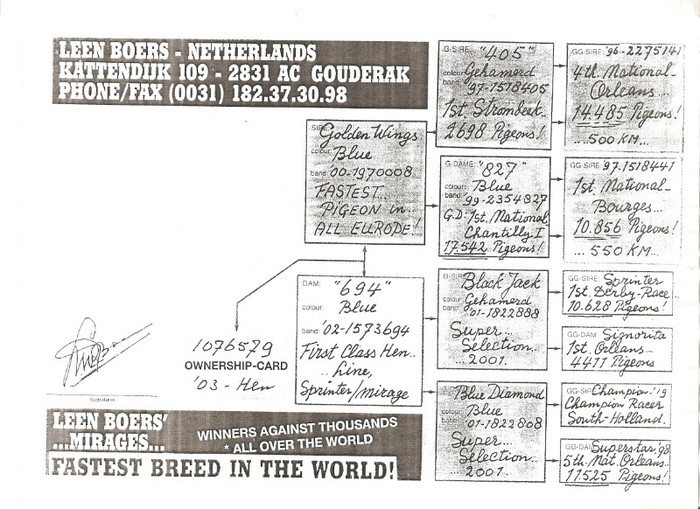 LEEN BOERS - NETHERLANDS
KATTENDIJK 109 - 2831 AC GOUDERAK
PHONE/FAX (0031) 182.37.30.98
SIRE: Golden Wings
colour: Blue
band: '00-1970008
FASTEST...
PiGEON in...
ALL EUROPE!
DAM: "694"
colour: Blue
band: '02-1573694
First Class Hen..
.. Line,
Sprinter/mirage
1076579
OWNERSHIP-CARD
'03 - Hen
G-SIRE: "405"
colour: Gehamerd
band: '97-1518405
1st. Strombeek..
2698 Pigeons!
G-DAME: "827"
colour: Blue
'99-2354827
G.D: 1st. National
Chantilly I
17.542 Pigeons!
G-SIRE Black Jack
Gehamerd
'01-1822888
Super...
Selection...
..2001.
Blue Diamond
Blue
'01-1822808
Super...
Selection..
2001.
GG-SIRE: '96-2275141
4th. National-
Orleans...
14.485 Pigeons!
...500 KM...
GG-SIRE '97-1518441
1st. National-
Bourges...
10.856 Pigeons!
... 550 KM...
GG-SIRE: Sprinter
1st. Derby-Race...
10.628 Pigeons!
GG-DAM Signorita
1st. Orleans-
4411 Pigeons
Champion
Champion Racer
South-Holland.
GG-DAM Superstar '98
5th. Nat. Orleans..
11525 Pigeons!
LEEN BOERS'
...MIRAGES...
WINNERS AGAINST THOUSANDS
* ALL OVER THE WORLD
FASTEST BREED IN THE WORLD!